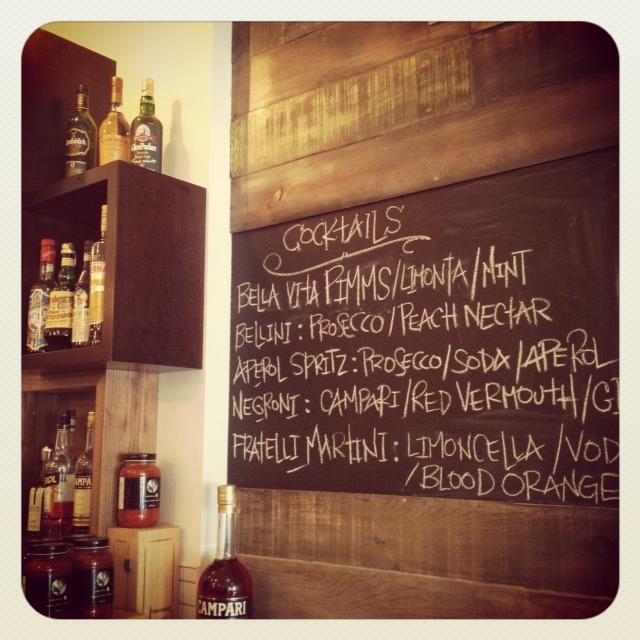 COCKTAILS
BELLA VITA PIMMS/LIMONTA/MINT
BELLINI: PROSECCO/PEACH NECTAR
APEROL SPRITZ: PROSECCO/SODA/APEROL
NEGRONI: CAMPARI/RED VERMOUTH/GI
FRATELLI MARTINI: LIMONCELLA/VOD
/BLOOD ORANGE
GlenParker
CAMPARI